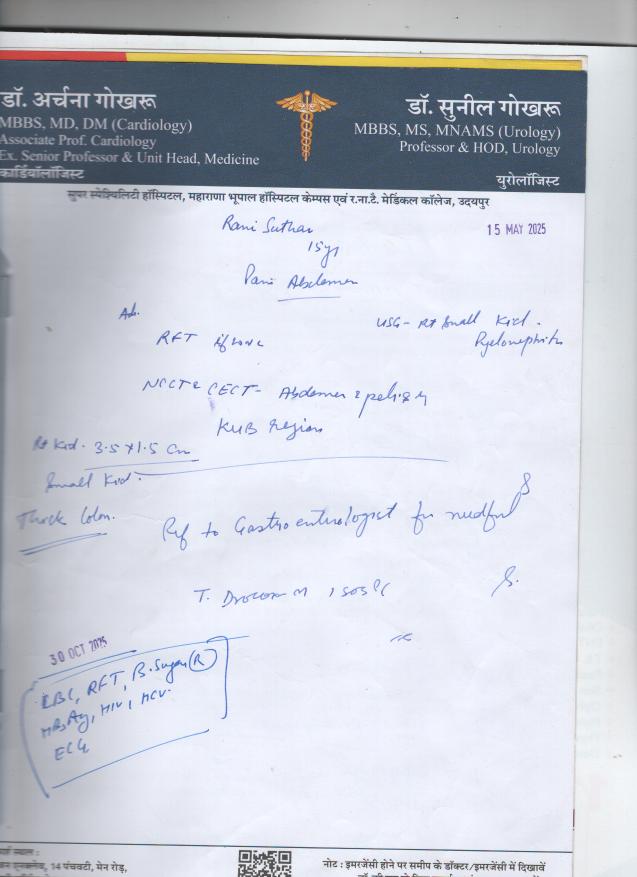 डॉ. अर्चना गोखरू
MBBS, MD, DM (Cardiology)
Associate Prof. Cardiology
Ex. Senior Professor & Unit Head, Medicine
कार्डियॉलॉजिस्ट
डॉ. सुनील गोखरू
MBBS, MS, MNAMS (Urology)
Professor & HOD, Urology
युरोलॉजिस्ट
सुपर स्पेश्यिलिटी हॉस्पिटल, महाराणा भूपाल हॉस्पिटल केम्पस एवं र.ना.टै. मेडिकल कॉलेज, उदयपुर
Rani Suthar
15 MAY 2025
15y
Pain Abdomen
Ad.
USG - Rt Small Kid.
Pyelonephritis
RFT
NCCT & CECT - Abdomen & pelvis
KUB region
Rt Kid. 3.5 x 1.5 cm
Small Kid.
Thick Colon.
Ref to Gastroenterologist for needful
T. 1 SOS
30 OCT 2025
CBC, RFT, B. Sugar (R)
HBsAg, HIV, HCV
ECG
14 पंचवटी, मेन रोड,
नोट : इमरजेंसी होने पर समीप के डॉक्टर/इमरजेंसी में दिखावें